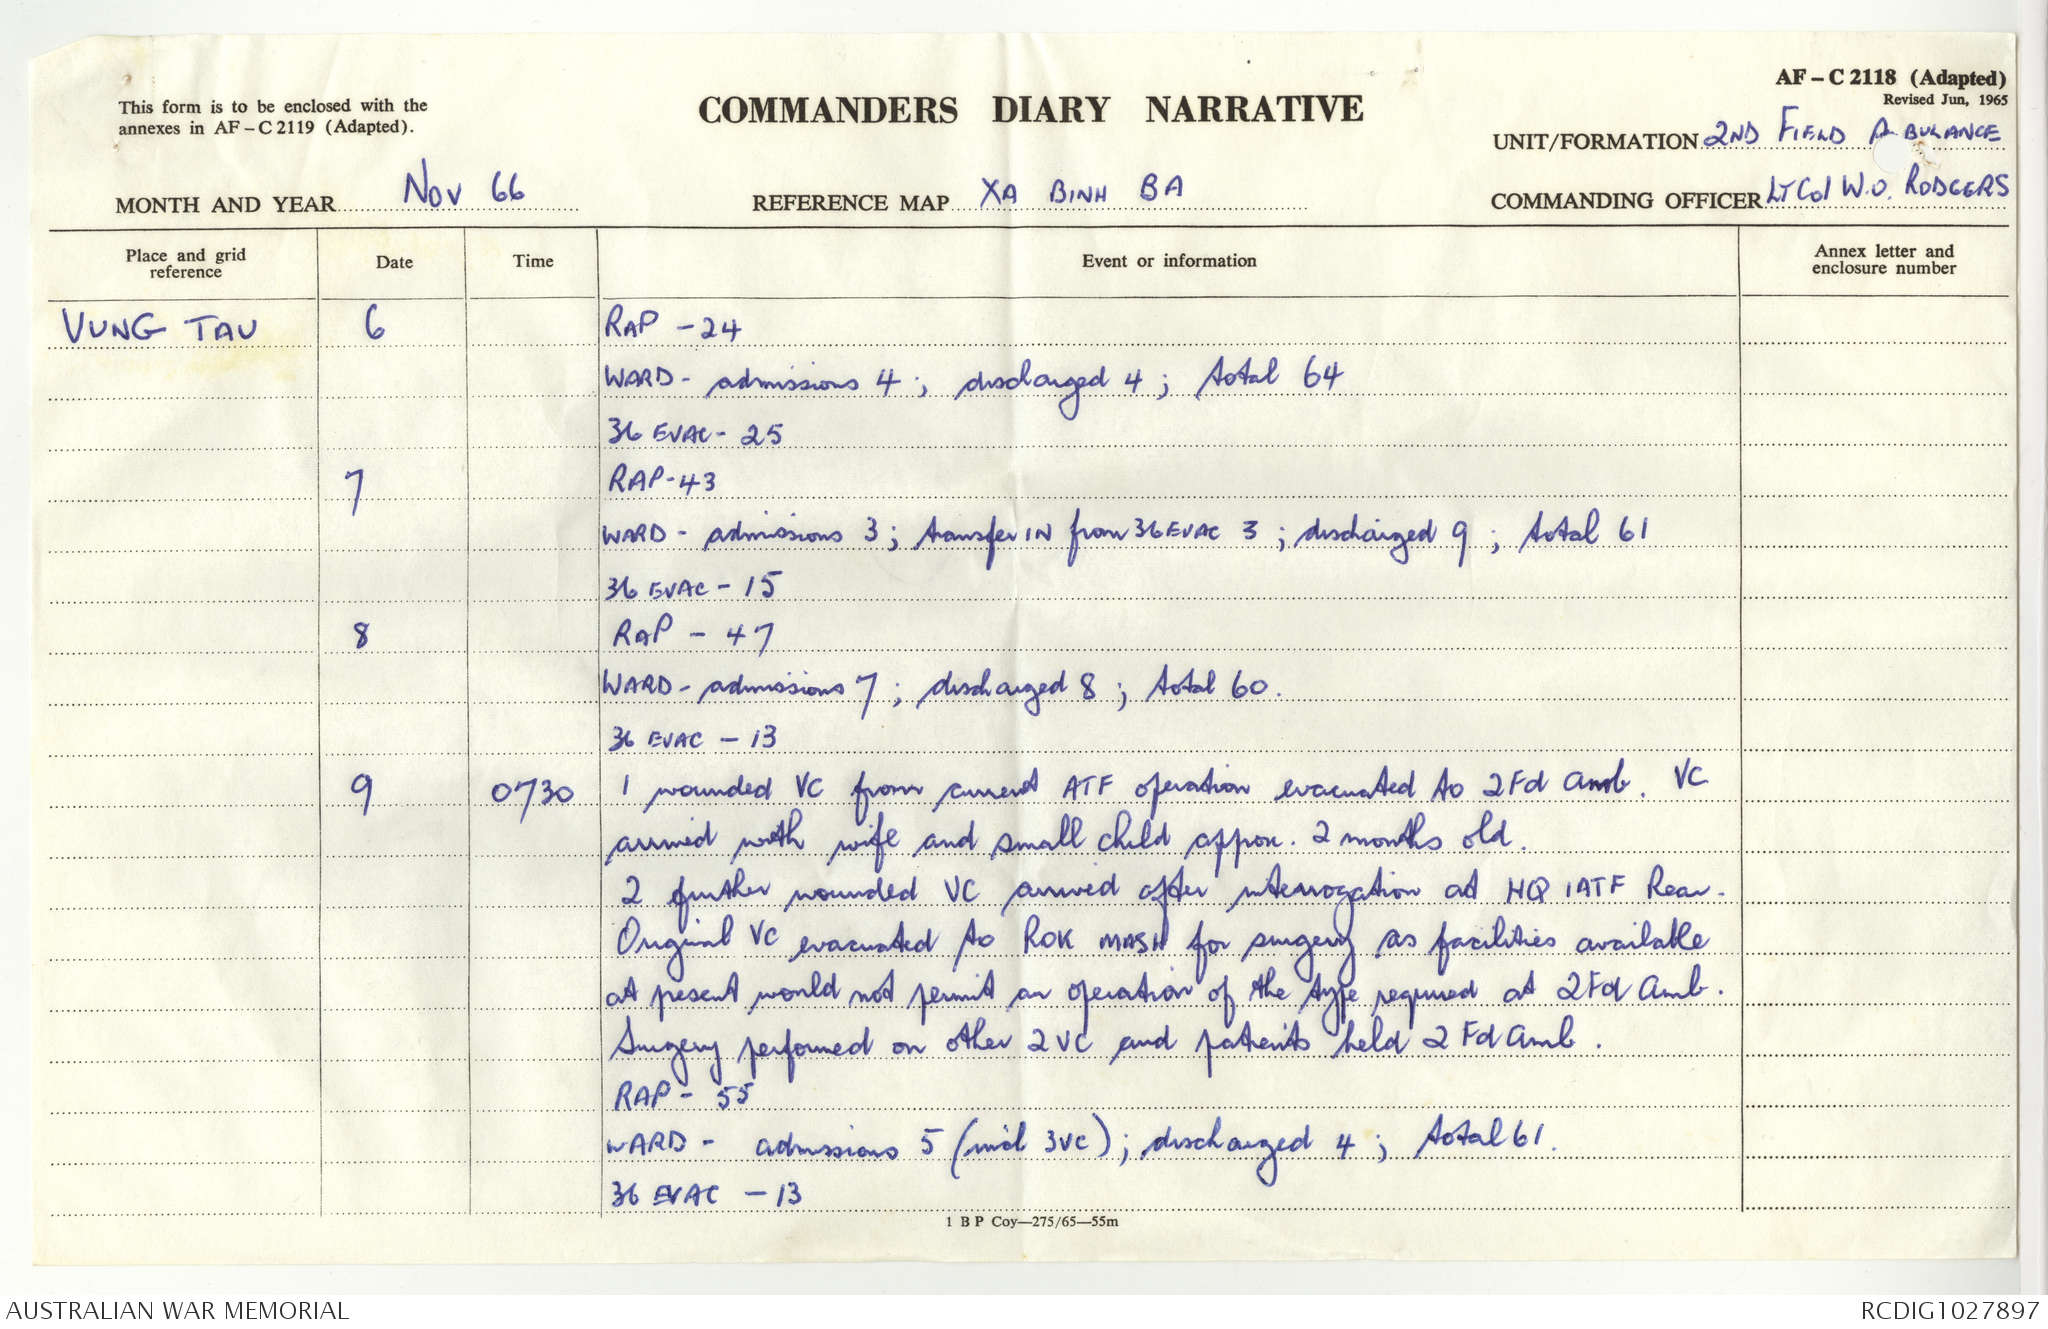 AF – C 2118 (Adapted)
Revised Jun, 1965
This form is to be enclosed with the
annexes in AF – C 2119 (Adapted).
COMMANDERS DIARY NARRATIVE
UNIT/FORMATION 2ND FIELD A BULANCE
MONTH AND YEAR Nov 66
REFERENCE MAP XA BINH BA
COMMANDING OFFICER Lt Col W.O. RODGERS
Place and grid
reference
Date
Time
Event or information
Annex letter and
enclosure number
VUNG TAU 6 RAP - 24
WARD - admissions 4; discharged 4; total 64
36 EVAC - 25
7 RAP - 43
WARD - admissions 3; transfer IN from 36 EVAC 3; discharged 9; total 61
36 EVAC - 15
8 RAP - 47
WARD - admissions 7; discharged 8; total 60.
36 EVAC - 13
9 0730 1 wounded VC from current ATF operation evacuated to 2 Fd Amb. VC
arrived with wife and small child approx. 2 months old.
2 further wounded VC arrived after interrogation at HQ 1ATF Rear.
Original VC evacuated to ROK MASH for surgery as facilities available
at present would not permit an operation of the type required at 2 Fd Amb.
Surgery performed on other 2 VC and patients held 2 Fd Amb.
RAP - 55
WARD - admissions 5 (incl 3VC); discharged 4; total 61.
36 EVAC - 13
1 B P Coy—275/65—55m
AUSTRALIAN WAR MEMORIAL
RCDIG1027897